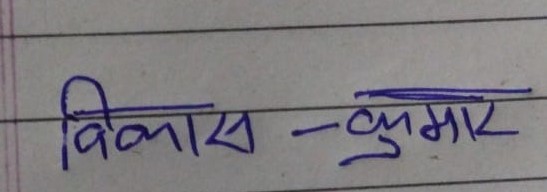 विकास - कुमार